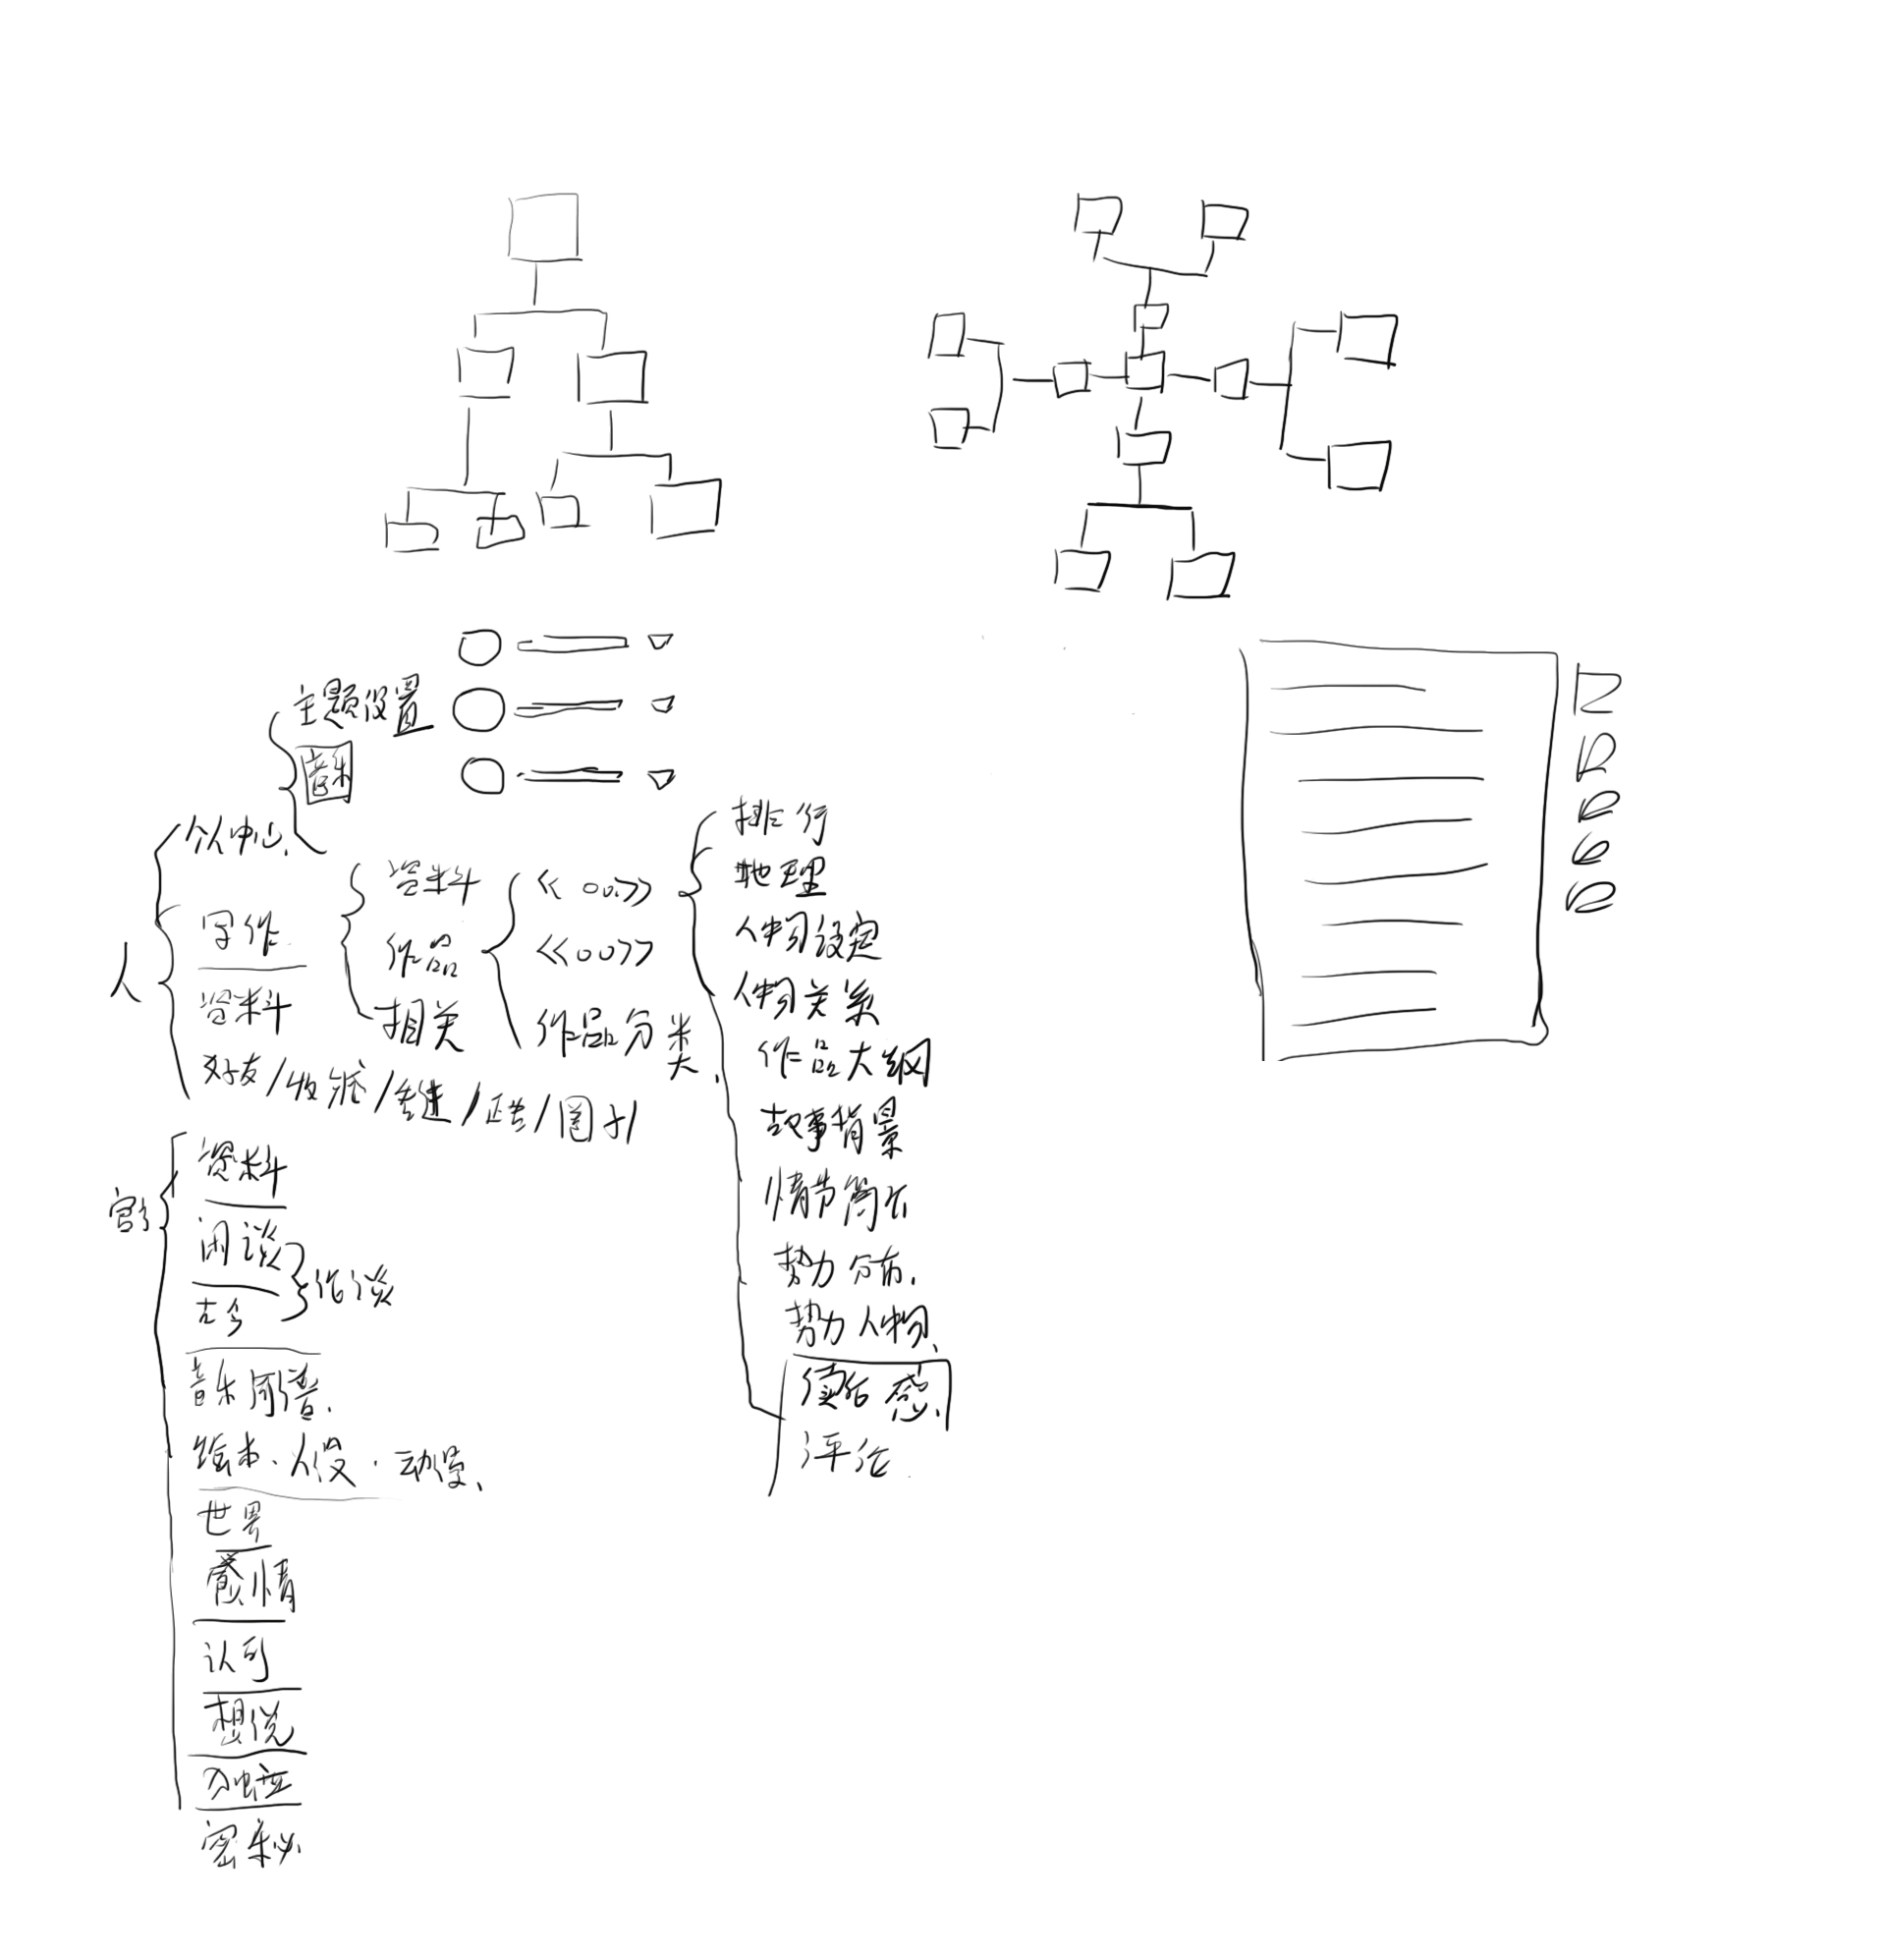 主题设置
音乐
个人中心.
人
写作
资料
好友/收藏/
/圈子/
资料
作品
相关
《00.》
《00》
作品分类.
排行
地理
人物设定
人物关系
作品大纲
故事背景
情节简介
势力分布.
势力人物.
读后感.
评论
资料
闲谈
古今
音乐
绘本.人漫.动漫.
世界
感情
认可
想说
独立
密秘.